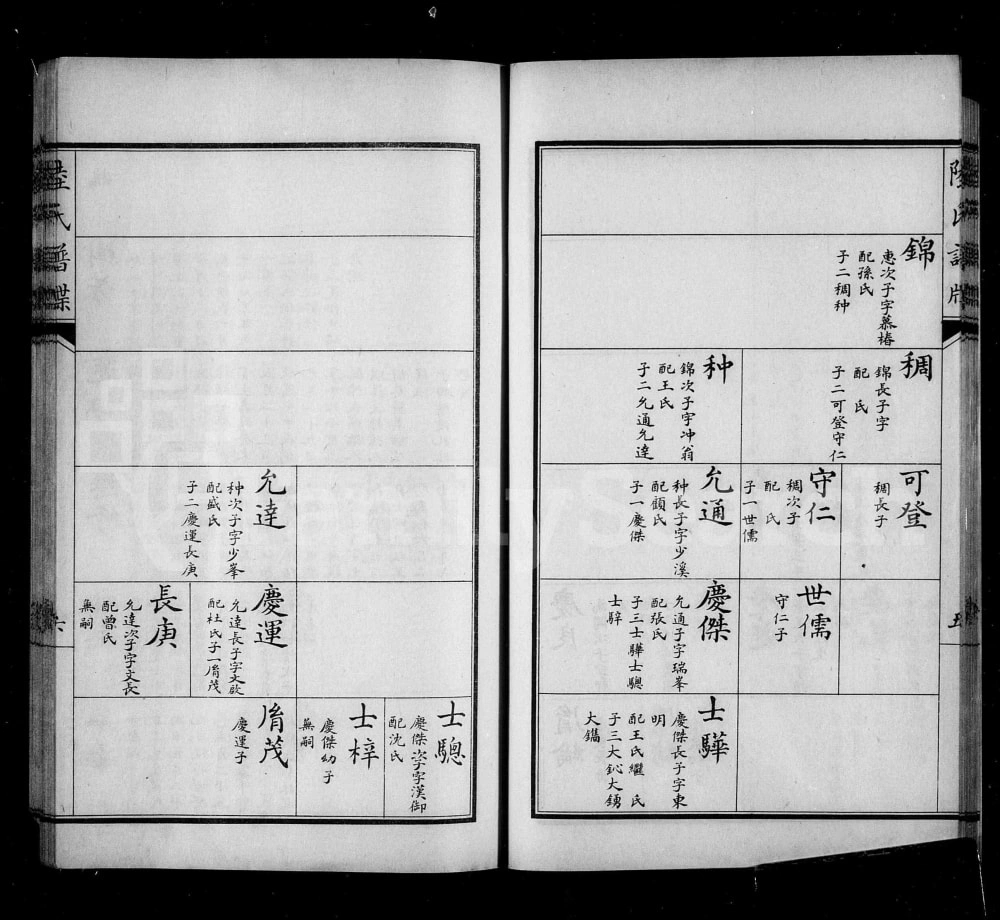 陸氏譜牒
五
錦
惠次子字慕椿
配孫氏
子二稠种
稠
錦長子字
配　氏
子二可登守仁
种
錦次子字冲翁
配王氏
子二允通允達
可登
稠長子
守仁
稠次子
配　氏
子一世儒
允通
种長子字少溪
配顧氏
子一慶傑
世儒
守仁子
慶傑
允通子字瑞峯
配張氏
子三士驊士驄
士梓
士驊
慶傑長子字東
明
配王氏繼　氏
子三大鈊大鏞
大鐫
允達
种次子字少峯
配盛氏
子二慶運長庚
慶運
允達長子字文啟
配杜氏子一胤茂
長庚
允達次子字文長
配曾氏
無嗣
士驄
慶傑次子字漢御
配沈氏
士梓
慶傑幼子
無嗣
胤茂
慶運子
陸氏譜牒
六